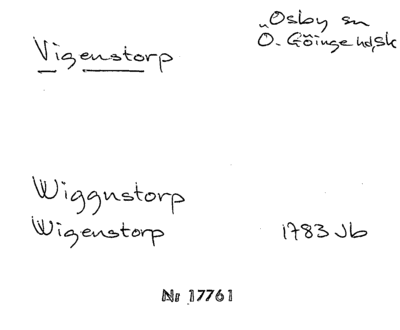 Vigenstorp
Osby sn
Ö. Göinge hd, Sk
Wiggnstorp
Wigenstorp 1783 Jb
Nr 17761